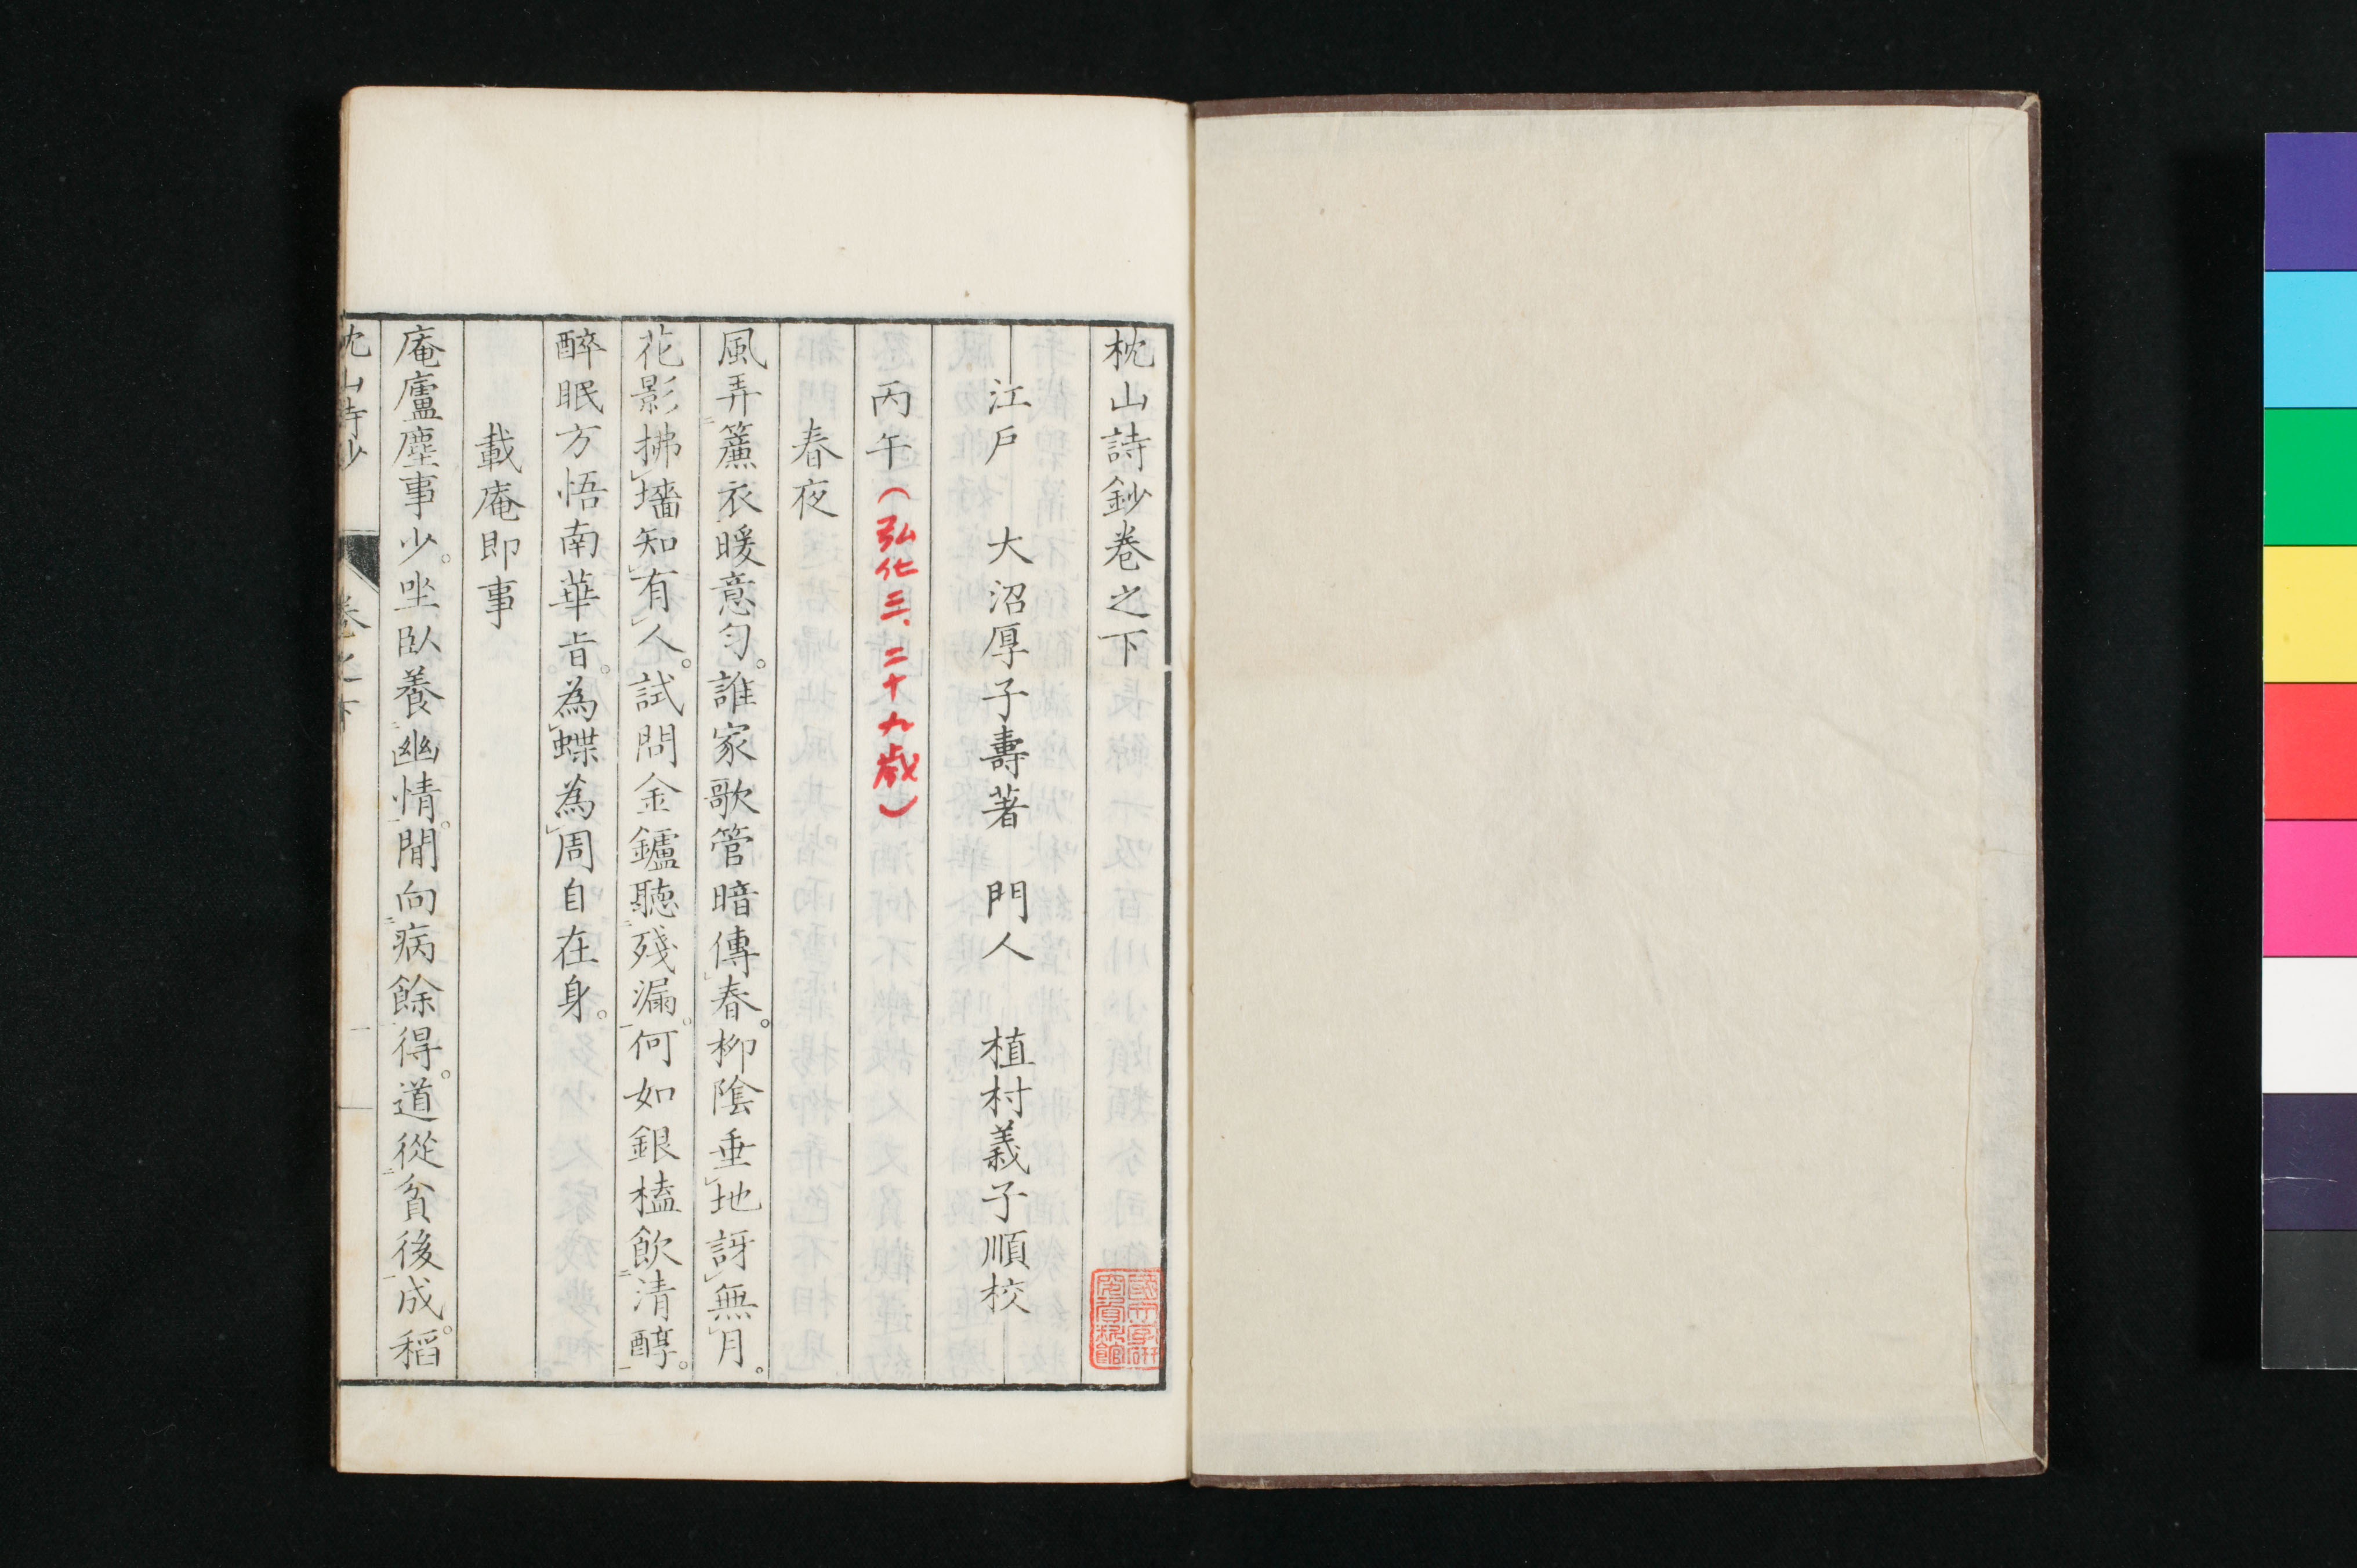 枕山詩鈔卷之下
江戶　大沼厚子壽著　門人　植村義子順校
丙午（弘化三、二十九歳）
春夜
風弄簾衣暖意匀。誰家歌管暗傳春。柳陰垂地訝無月。
花影拂墻知有人。試問金鑪聽殘漏。何如銀榼飲清醇。
醉眠方悟南華旨。為蝶為周自在身。
載庵即事
庵廬塵事少。坐臥養幽情。閒向病餘得。道從貧後成。稻
枕山詩鈔　卷之下　一